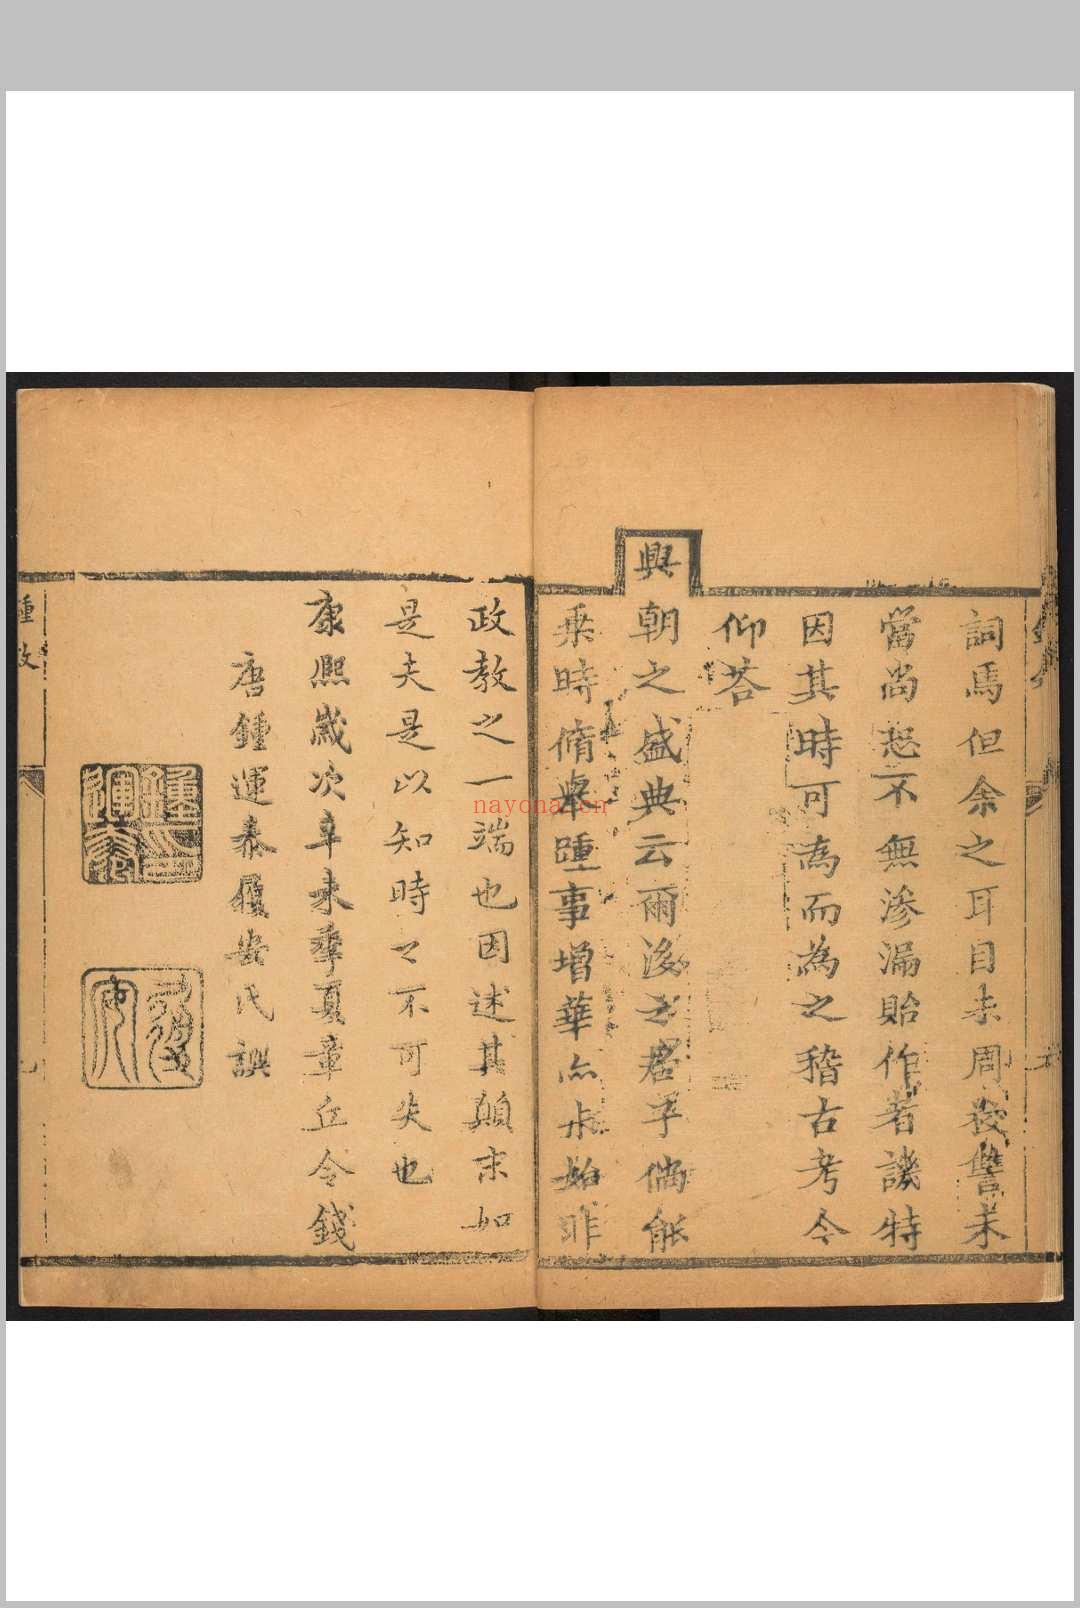 詞焉但余之耳目未周校讐未
當尚恐不無滲漏貽作者譏特
因其時可為而為之稽古考今
仰荅
興朝之盛典云爾後之君子倘能
乗時脩舉踵事增華亦未始非
政教之一端也因述其顛末如
是夫是以知時之不可失也
康熙歲次辛未季夏章丘令錢
唐鍾運泰履安氏譔
鍾運泰印
履安
nayona.cn